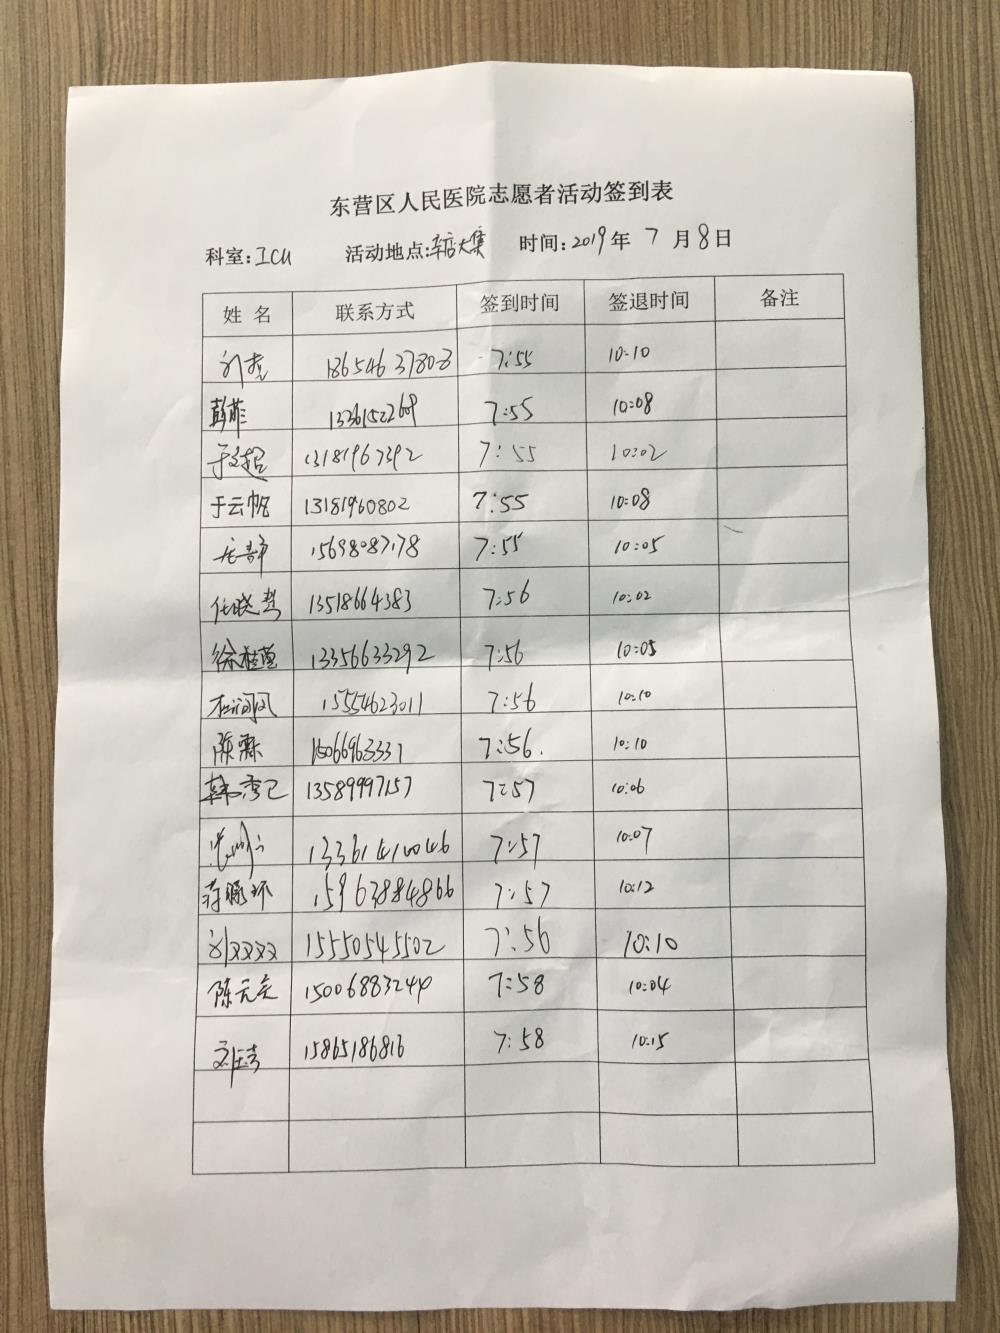 东营区人民医院志愿者活动签到表
科室:ICU 活动地点:辛店大集 时间:2019年7月8日
姓名 联系方式 签到时间 签退时间 备注
7:55 10:10
彭菲 7:55 10:08
于文超 13181967392 7:55 10:02
于云帆 13181960802 7:55 10:08
15698087178 7:55 10:05
任晓梦 13518664383 7:56 10:02
徐桂莲 13356633292 7:56 10:05
杜润凤 15554623011 7:56 10:10
陈霖 15066963331 7:56. 10:10
韩秀己 13589997157 7:57 10:06
13361410046 7:57 10:07
蒋曉环 15963884866 7:57 10:12
刘双双 15550545502 7:56 10:10
陈元元 15006883240 7:58 10:04
15865186816 7:58 10:15